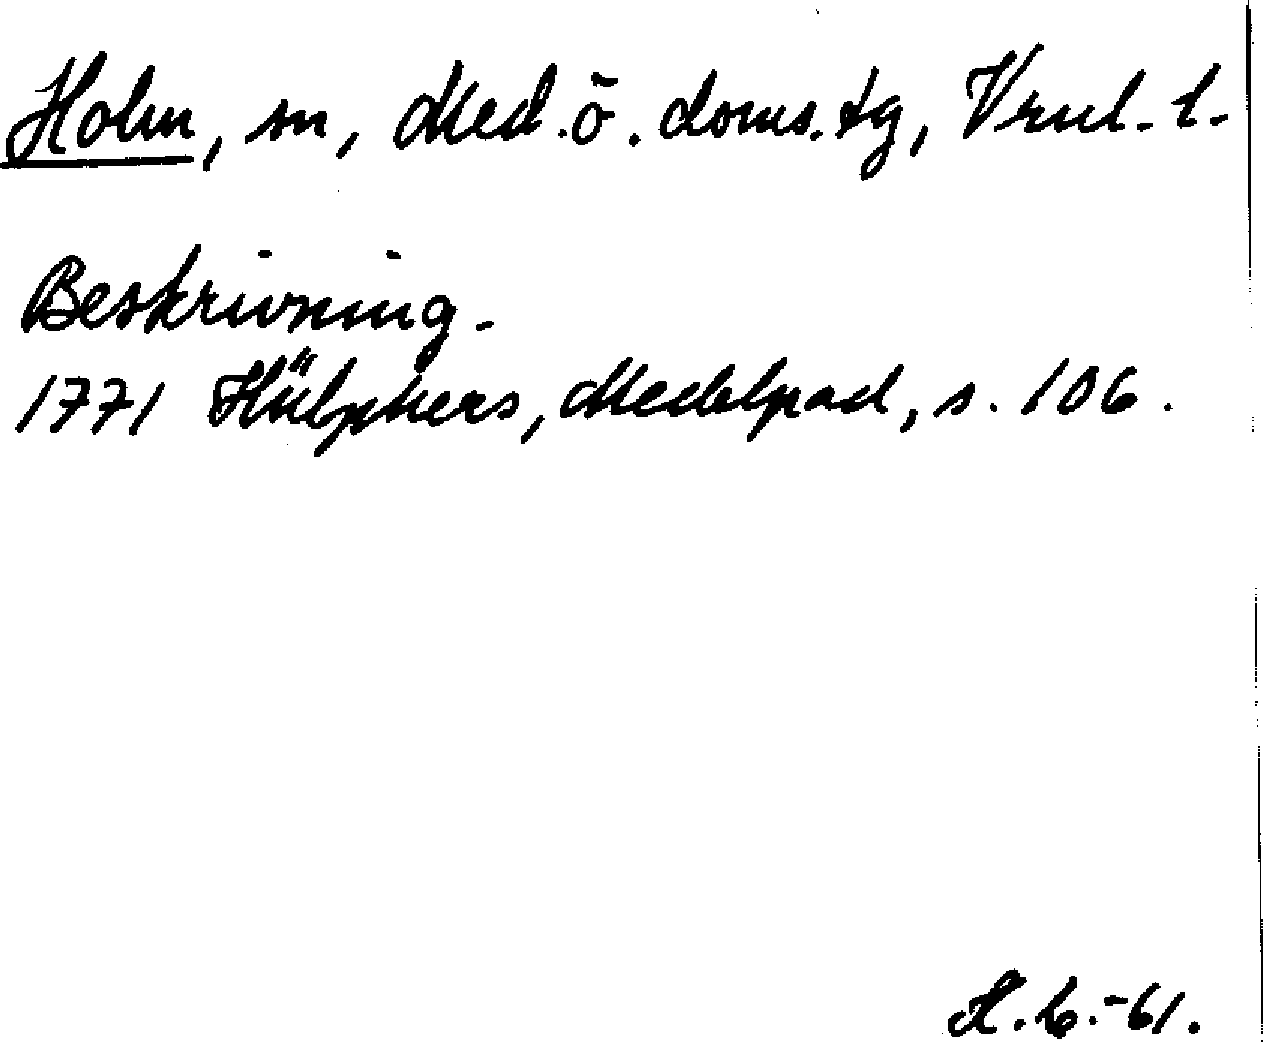 Holm, sn, Med. ö. doms. tg, Vrnl. l.
Beskrivning.
1771 Hülphers, Medelpad, s. 106.
H. L. -61.